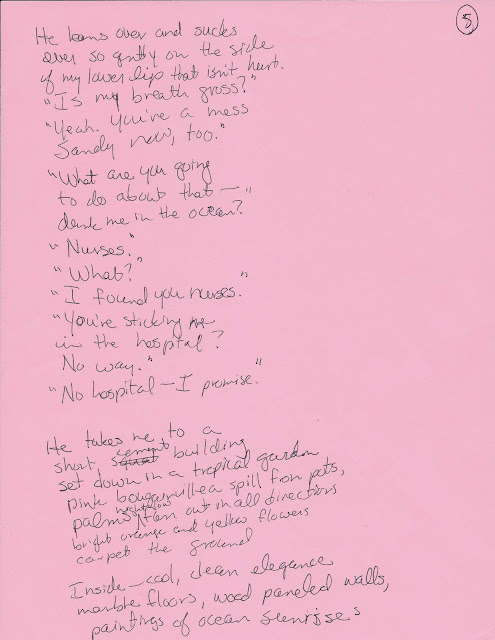 5
He leans over and sucks
ever so gently on the side
of my lower lip that isn't hurt.
"Is my breath gross?"
"Yeah. You're a mess
Sandy now, too."
"What are you going
to do about that —
dunk me in the ocean?"
"Nurses."
"What?"
"I found you nurses."
"You're sticking me
in the hospital?
No way."
"No hospital — I promise."
He takes me to a
short cement building
set down in a tropical garden
pink bougainvillea spill from pots,
palms fan out in all directions
bright orange and yellow flowers
carpet the ground
Inside — cool, clean elegance
marble floors, wood paneled walls,
paintings of ocean sunrises